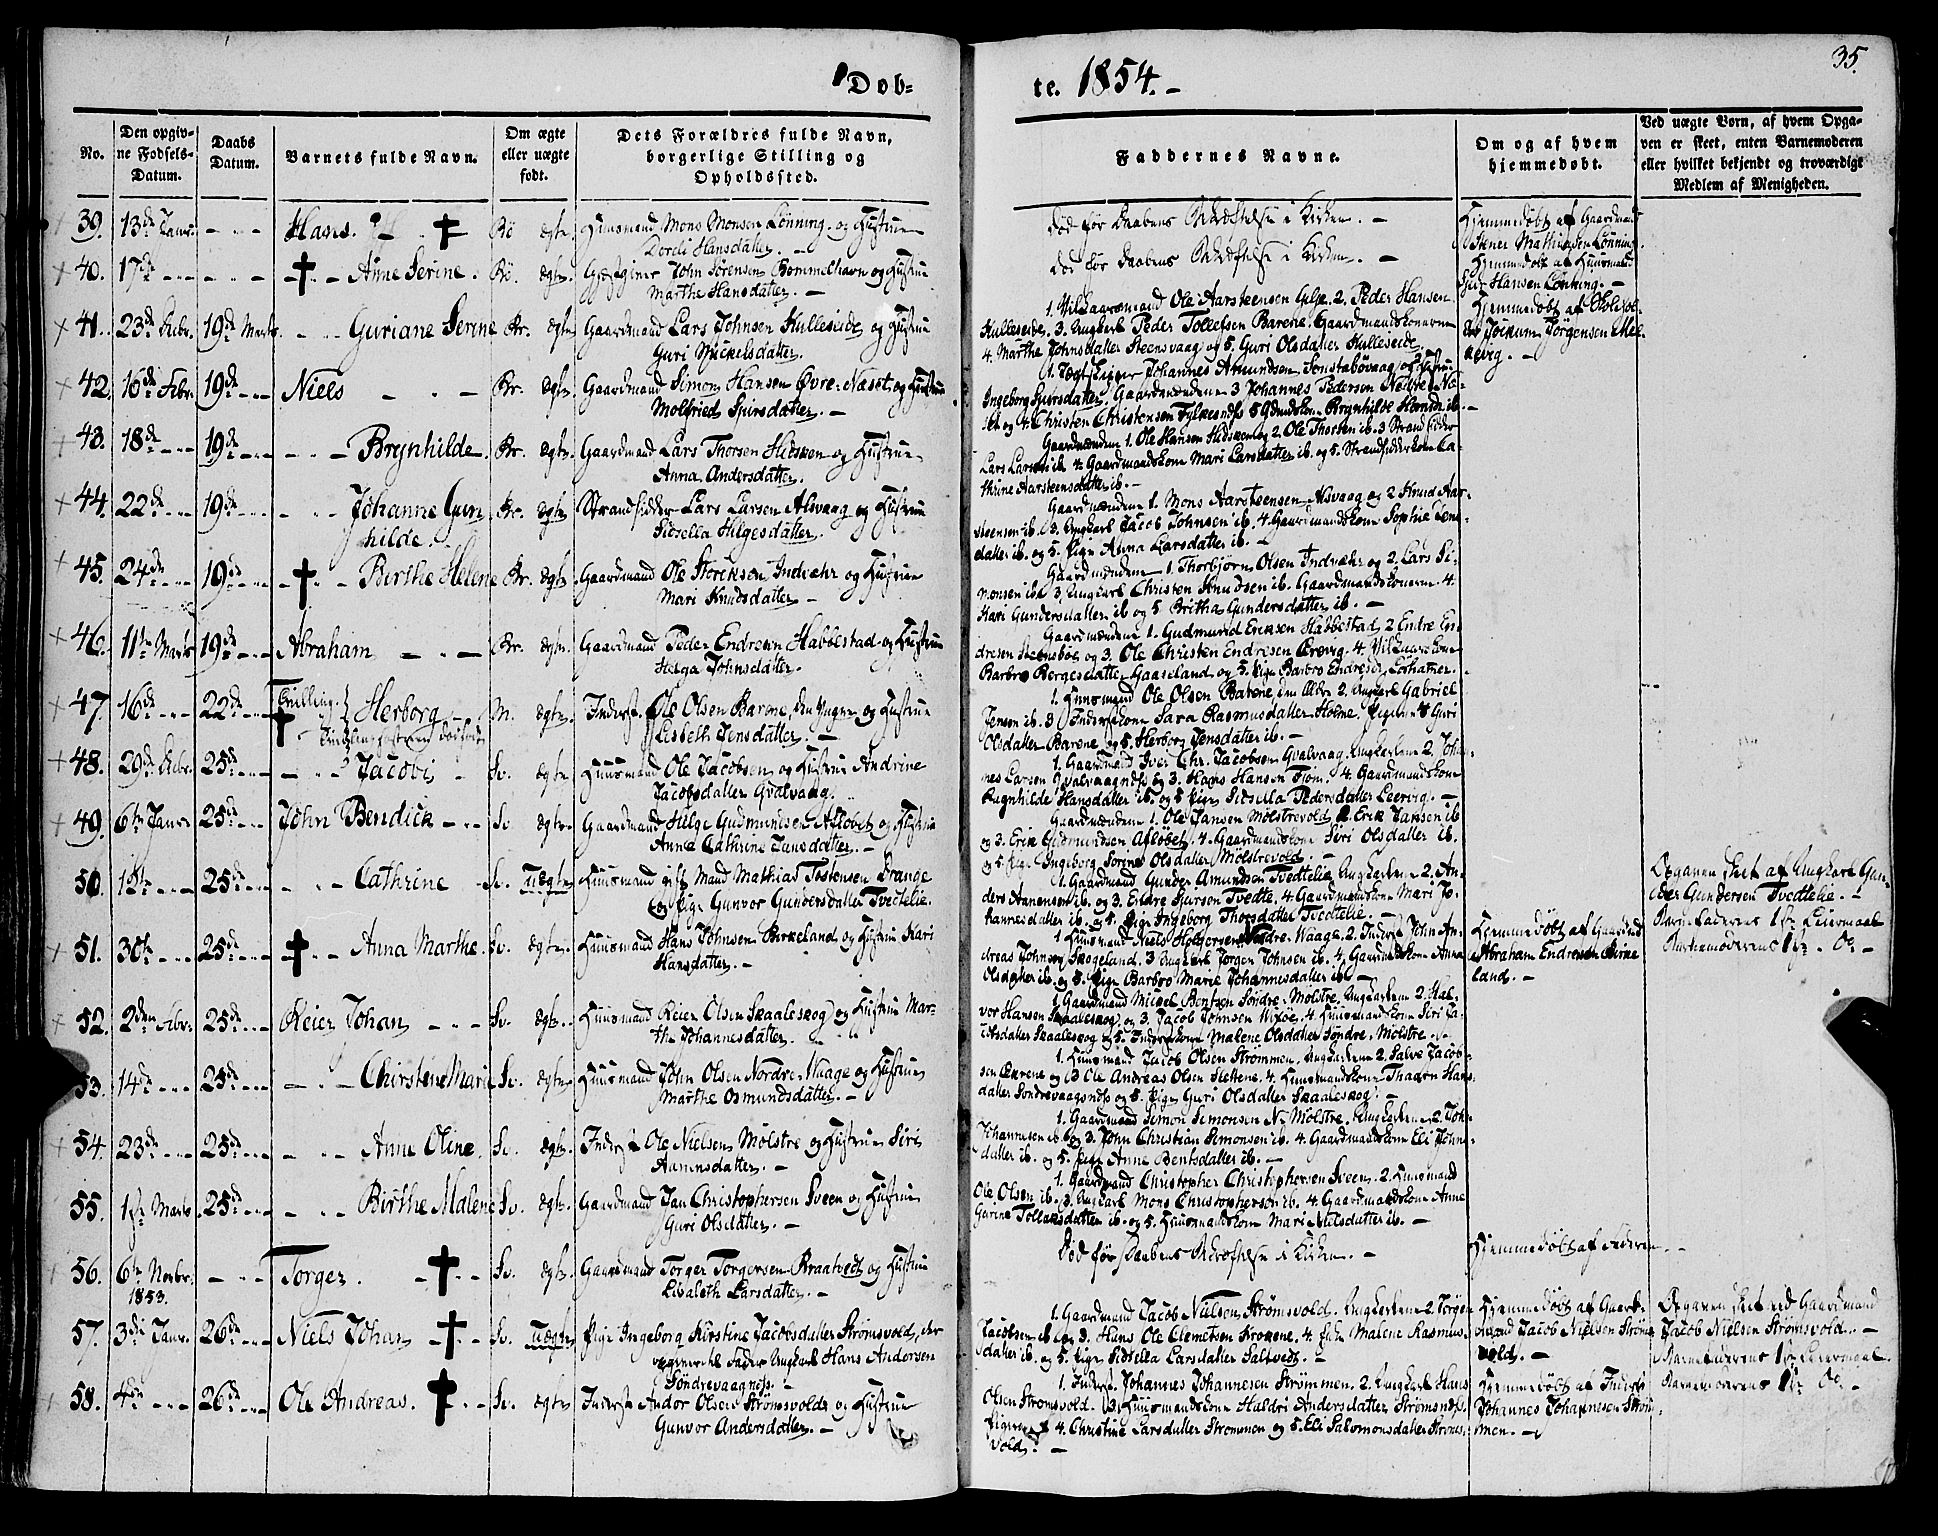 Dob=
te. 1854.-
35.
No.
Den opgiv-
ne Fodsels-
Datum.
Daabs
Datum.
Barnets fulde Navn.
Om ægte
eller uægte
fodt.
Dets Forældres fulde Navn,
borgerlige Stilling og
Opholdssted.
Faddernes Navne.
Om og af hvem
hjemmedobt.
Ved uægte Born, af hvem Opga-
ven er skeet, enten Barnemoderen
eller hvilket bekjendt og troværdigt
Medlem af Menigheden.
39. 13de Janr. Hans. Bö Ægte. Huusmand Mons Monsen Lönning og Hustrue
Dordi Hansdatter.
Död för Daabens Bekræftelse i Kirken.
Hjemmedöbt af Gaardmand
Stener Mathiasen Lönning.
40. 17de Anne Serine. Bö. Ægte. Gjæstgiver John Sörensen Bommelhavn og Hustrue
Marthe Hansdatter.
Död för Daabens Bekræftelse i Kirken.
Hjemmedöbt af Huusmand
Hansen Lönning.
41. 23de Febr. 19de Marts. Guriane Serine Br. Ægte. Gaardmand Lars Johnsen Hulleseide og Hustrue
Guri Nickelsdatter.
1. Vilkaarsmand Ole Aarsteensen Gilje. 2. Peder Hansen
Hulleseide, 3. Ungkarl Peder Tollefsen Barene, Gaardmandskonerne
4. Marthe Johnsdatter Steensvaag og 5. Guri Olsdatter Hulleseide.
Hjemmedöbt af Skolehol-
der Jockum Jörgensen Mel-
kevig.
42. 16de Febr. 19de Niels Br. Ægte. Gaardmand Simon Hansen Övre-Næset og Hustrue
Molfried Sjursdatter.
Johannes Amundsen
Ingeborg Sjursdatter. Gaardmændene 3 Johannes Pedersen Nedre Næ-
4 Christen Christensen
43. 18de 19de Brynhilde. Br. Ægte. Gaardmand Lars Thorsen Hidsøen og Hustrue
Anna Andersdatter.
Gaardmændene 1. Ole Hansen Hidsøen og 2. Ole Thorsen ib. 3 Strandsidder
Lars Larsen ib. 4 Gaardmandskone Mari Larsdatter ib. og 5. Strandsidderkone Ca-
thrine Aarsteensdatter ib.
44. 22de 19de Johanne Gun
hilde. Br. Ægte. Strandsidder Lars Larsen Alsvaag og Hustrue
Sidsella Helgesdatter.
Gaardmændene 1. Mons Aarsteensen Alsvaag og 2 Knud Aar-
steensen ib. 3. Ungkarl Jacob Johnsen ib. 4. Gaardmandskone Sophie Jens-
datter ib. og 5. Pige Anna Larsdatter ib.
45. 24de 19de Birthe Helene Br. Ægte. Gaardmand Ole Storksen Indvær og Hustrue
Mari Knudsdatter.
Gaardmændene 1. Thorbjörn Olsen Indvær og 2. Lars Si-
monsen ib. 3. Ungkarl Christen Knudsen ib. Gaardmandskonerne 4.
Kari Gundersdatter ib. og 5 Britha Gundersdatter ib.
46. 11te Marts 19de Abraham Br. Ægte. Gaardmand Peder Endresen Habbestad og Hustrue
Helga Johnsdatter.
Gaardmændene 1. Gudmund Eriksen Habbestad, 2 Endre En-
dresen og 3. Ole Christen Endresen 4. Vilkaarskone
Barbro Børgesdatter Gaaseland og 5. Pige Barbro Endresd.
47. 16de 22de Tvilling. Herborg M. Ægte. Inderst Ole Olsen Barene, den Yngre og Hustrue
Lisbeth Jensdatter.
1. Huusmand Ole Olsen Barene, den Ældre 2. Ungkarl Gabriel
Jensen ib. 3 Inderstkone Sara Rasmusdatter Holme. Pigerne 4 Guri
Olsdatter Barene og 5. Herborg Jensdatter ib.
48. 29de 25de Jacobi Sv. Ægte. Huusmand Ole Jacobsen og Hustrue Andrine
Jacobsdatter Qvalvaag.
1. Gaardmand Iver Chr. Jacobsen Qvalvaag. Ungkarlene 2. Johan-
nes Larsen Qvalvaagnæs og 3. Hans Hansen 4. Gaardmandskone
Ragnhilde Hansdatter ib. og 5 Pige Sidsella Pedersdatter Leervig.
49. 6te Janr. 25de John Bendick Sv. Ægte. Gaardmand Helge Gudmundsen Aflöbet og Hustrue
Anne Cathrine Jansdatter.
Gaardmændene 1. Ole Jansen Mölstrevold 2. Erik Jansen ib
og 3. Erik Gudmundsen Aflöbet, 4. Gaardmandskone Siri Olsdatter ib.
og 5. Pige Ingeborg Serine Olsdatter Mölstrevold.
50. 15de 25de Cathrine Sv. Uægte. Huusmand gift Mand Mathias Tostensen Drange
og Pige Gunvor Gundersdatter Tvedtelie.
1. Gaardmand Gunder Amundsen Tvedtelie, Ungkarlene 2. An-
ders Aanensen ib. og 3. Endre Sjursen Tvedte, 4. Gaardmandskone Mari Jo-
hannesdatter ib. og 5. Pige Ingeborg Thorsdatter Tvedtelie.
Opgaven skeet af Ungkarl Gun-
der Gundersen Tvedtelie.
Barnefaderens 1ste Leiermaal
Barnemoderens 1ste Do.
51. 30te 25de Anna Marthe. Sv. Ægte. Huusmand Hans Johnsen Birkeland og Hustrue Kari
Hansdatter.
1 Huusmand Niels Holgersen Nordre-Waage. 2. Inderst John An-
dreas Johnsen Skogeland. 3 Ungkarl Jörgen Johnsen ib. 4. Gaardmandskone Anna
Olsdatter ib. og 5. Pige Barbro Marie Johannesdatter ib.
Hjemmedöbt af Gaardmand
Abraham Endresen Birke
land.
52. 2den Febr. 25de Reier Johan Sv. Ægte. Huusmand Reier Olsen Skaaleskog og Hustrue Mar-
the Johannesdatter.
1. Gaardmand Mikkel Bentsen Söndre-Mölstre. Ungkarlene 2. Hal-
vor Hansen Skaaleskog og 3. Jacob Johnsen 4. Huusmandskone Siri La-
Skaaleskog og 5. Inderstkone Malene Olsdatter Söndre-Mölstre.
53. 14de 25de Christine Marie Sv. Ægte. Huusmand John Olsen Nordre-Waage og Hustrue
Marthe Osmundsdatter.
1. Huusmand Jacob Olsen Strömmen. Ungkarlene 2. Salve Jacob-
sen og 3 Ole Andreas Olsen Slettene. 4. Huusmandskone Hans-
datter Söndrevaagnæs og 5. Pige Guri Olsdatter Skaaleskog.
54. 23de 25de Anne Oline. Sv. Ægte. Inderst Ole Nielsen Mölstre og Hustrue Siri
Aanensdatter.
1. Gaardmand Simon Simonsen N. Mölstre. Ungkarlene 2. Joh.
Johannesen ib. og 3. John Christian Simonsen ib. 4. Gaardmandskone Eli John-
datter ib. og 5. Pige Anne Bentsdatter ib.
55. 1ste Marts. 25de Birthe Malene Sv. Ægte. Gaardmand Jan Christophersen Sveen og Hustrue
Guri Olsdatter.
1. Gaardmand Christopher Christophersen Sveen. 2. Huusmand
Ole Olsen ib. 3. Ungkarl Mons Christophersen ib. 4. Gaardmandskone Anne
Gurine Tollaksdatter ib. og 5. Huusmandskone Mari Nielsdatter ib.
56. 6te Novbr.
1853. Torger Sv. Ægte. Gaardmand Torger Torgersen Kraatvedt og Hustrue
Lisabeth Larsdatter.
Död för Daabens Bekræftelse i Kirken.
Hjemmedöbt af Faderen.
57. 3die Janr. 26de Niels Johan Sv. Uægte. Pige Ingeborg Kirstine Jacobsdatter Strömsvold, der
opgiver til Fader Ungkarl Hans Andersen
Söndrevaagnæs.
1. Gaardmand Jacob Nielsen Strömsvold. Ungkarlene 2. Jörgen
Jacobsen ib. og 3. Hans Ole Clemetsen Krokene. 4. Malene Rasmus-
datter ib. og 5. Pige Sidsella Larsdatter Saltvedt.
Hjemmedöbt af Gaard-
mand Jacob Nielsen Ströms
vold.
Opgaven skeet ved Gaardmand
Jacob Nielsen Strömsvold.
Barnefaderens 1ste Leiermaal.
Barnemoderens 1ste Do.
58. 4de 26de Ole Andreas. Sv. Ægte Inderst Andor Olsen Strömsvold og Hustrue
Gunvor Andersdatter.
1. Inderst Johannes Johannesen Strömmen. 2. Ungkarl Hans
Olsen Strömsvold. 3. Huusmandskone Haldri Andersdatter Strömsnæs.
Pigerne 4. Christine Larsdatter Strömmen og 5. Eli Salomonsdatter Ströms-
vold.
Hjemmedöbt af Inderst
Johannes Johannesen Ström-
men.